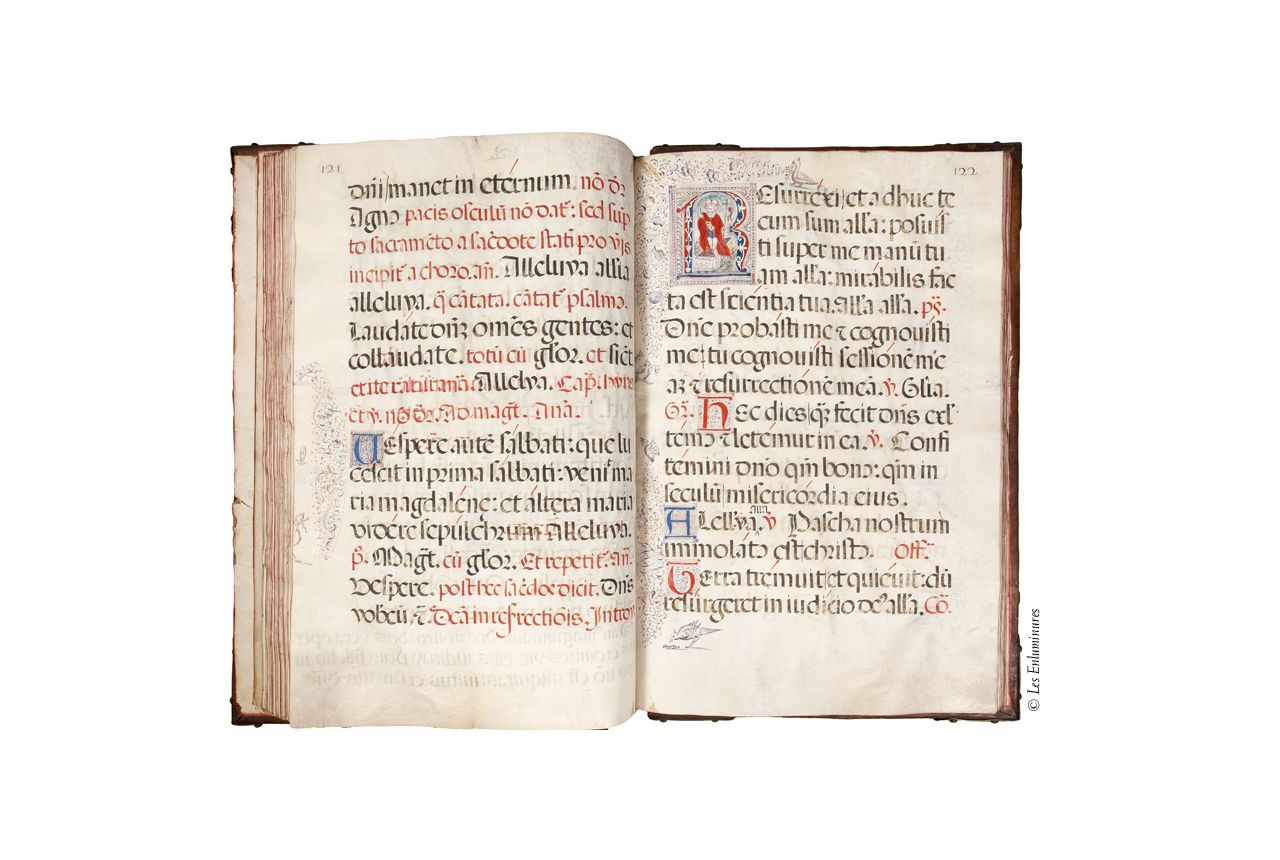 121
dñi manet in eternum. nõ dr̃
Agnꝰ pacis osculũ nõ dat᷑: sed sũp
to sacramẽto a sac̃dote stati pro vr̃is
incipit᷑ a choro. añ. Alleluya allĩa
alleluya. q̃ cãtata. cãtat᷑ psalmꝰ.
Laudate dñ3 omẽs gentes: et
collaudate. totũ cũ glõr. et sic̃t
Allelỹa. Cap̃. hỹnꝰ
et v̊. nõ dr̃. Ad. magt̃. Anã.
Vespere autẽ sabbati: que lu
cescit in prima sabbati: venit ma
ria magdalene: et altera maria
videre sepulchrum Alleluya.
p̃. Magt̃. cũ glõr. Et repetit᷑. añ.
Vespere. post hec sac̃doc dicit. Dñs
vobcũ. ⁊̃. Dẽa in refrectiõis. Introỹ
122
Resurrexi et adhuc te
cum sum alĩa: posuis
ti super me manũ tu
am alĩa: mirabilis fac
ta est scientia tua. alĩa alĩa. ps̃.
Dñe probasti me ⁊ cognouisti
me: tu cognouisti sessionẽ mẽ
aꝫ ⁊ resurrectionẽ meã. v̊. Glĩa.
Gr̃. Hec dies q̃ꝫ fecit dñs exl̃
temꝰ ⁊ letemur in ea. v̊. Confi
temini dño qm̃ bonꝰ: qm̃ in
seculũ misericordia eius.
Allelỹa. alĩa v̊ Pascha nostrum
immolatꝰ est christꝰ. off̃.
Terra tremuit et quieuit: dũ
resurgeret in iudicio deꝰ alĩa. Cõ.
© Les Enluminures